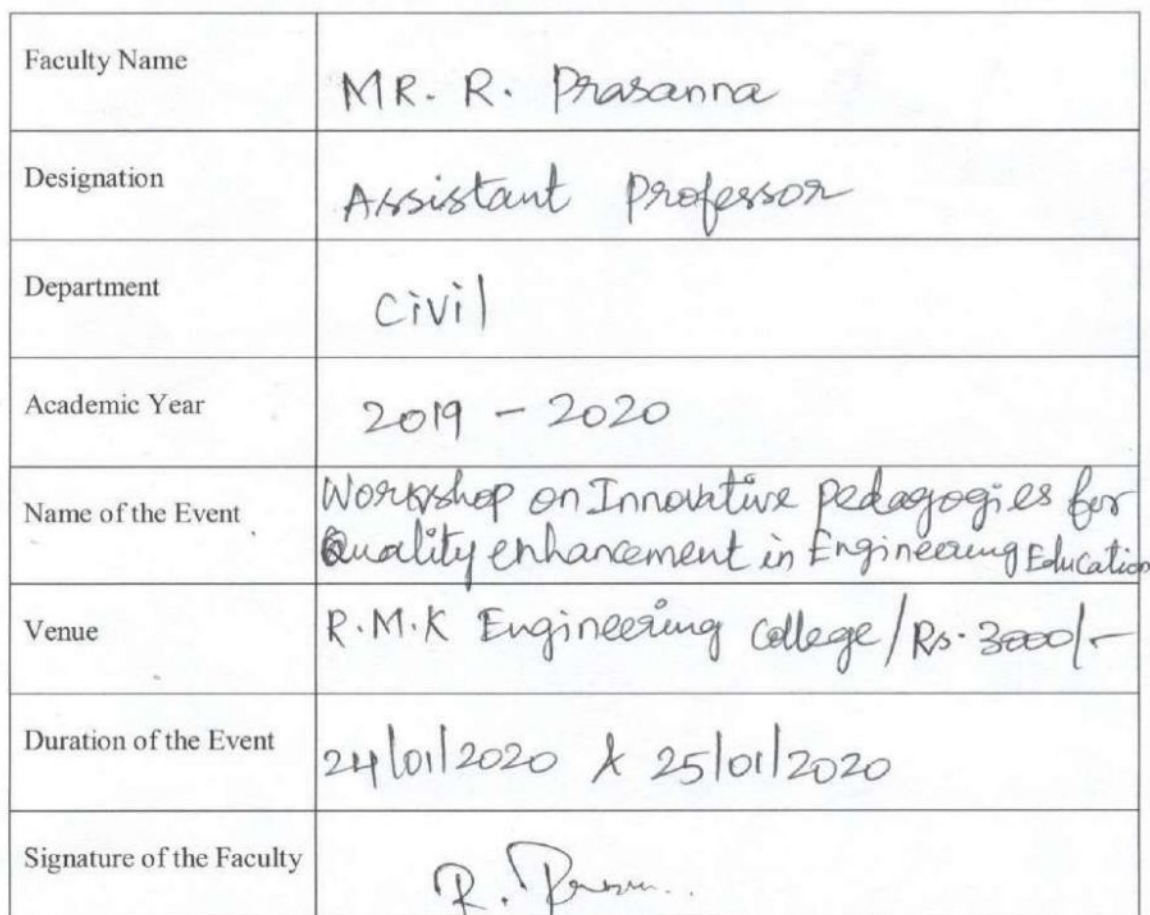 Faculty Name MR. R. Prasanna
Designation Assistant Professor
Department Civil
Academic Year 2019 - 2020
Name of the Event Workshop on Innovative pedagogies for
Quality enhancement in Engineering Education
Venue R.M.K Engineering College/Rs. 3000/-
Duration of the Event 24/01/2020 & 25/01/2020
Signature of the Faculty R.